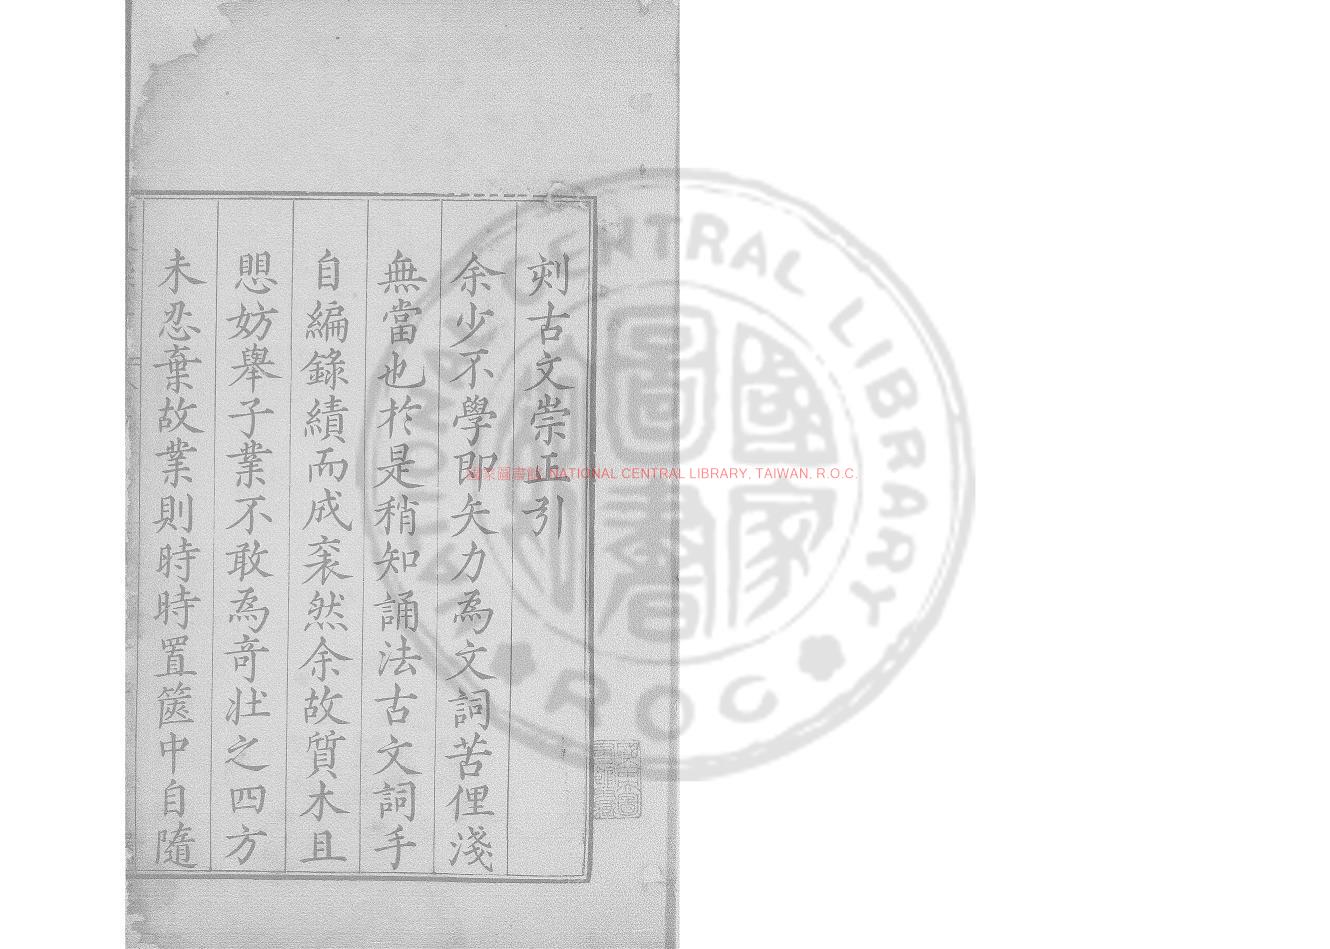 刻古文崇正引
余少不學即矢力為文詞苦俚淺
無當也於是稍知誦法古文詞手
自編錄績而成袠然余故質木且
思妨舉子業不敢為奇壯之四方
未忍棄故業則時時置篋中自隨
國家圖書館 NATIONAL CENTRAL LIBRARY, TAIWAN, R.O.C.
CENTRAL LIBRARY
國家圖書
R O C